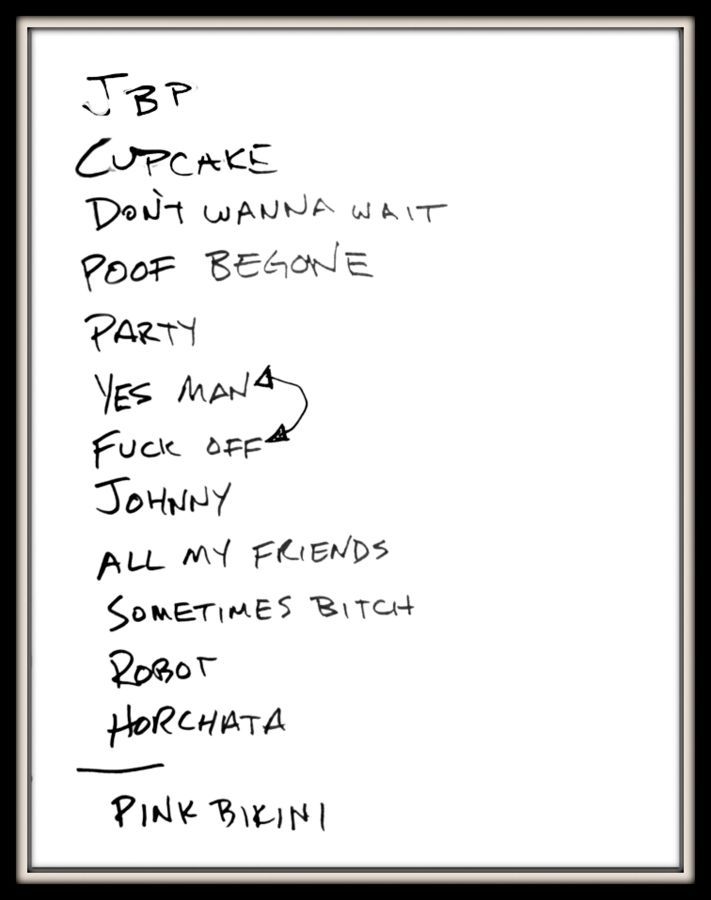 JBP
CUPCAKE
DON'T WANNA WAIT
POOF BEGONE
PARTY
YES MAN
FUCK OFF
JOHNNY
ALL MY FRIENDS
SOMETIMES BITCH
ROBOT
HORCHATA
PINK BIKINI